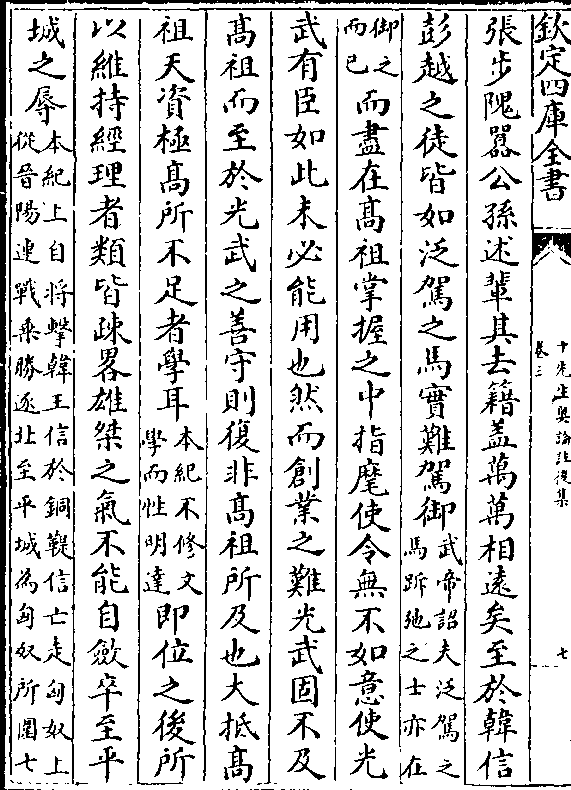 欽定四庫全書
十先生奧論註後集
卷三
七
張步隗囂公孫述輩其去籍蓋萬萬相遠矣至於韓信
彭越之徒皆如泛駕之馬實難駕御武帝詔夫泛駕之馬跅弛之士亦在
御之而已而盡在髙祖掌握之中指麾使令無不如意使光
武有臣如此未必能用也然而創業之難光武固不及
髙祖而至於光武之善守則復非髙祖所及也大抵髙
祖天資極髙所不足者學耳本紀不修文學而性明達即位之後所
以維持經理者類皆疎畧雄桀之氣不能自斂卒至平
城之辱本紀上自將擊韓王信於銅鞮信亡走匈奴上從晉陽連戰乘勝逐北至平城為匈奴所圍七